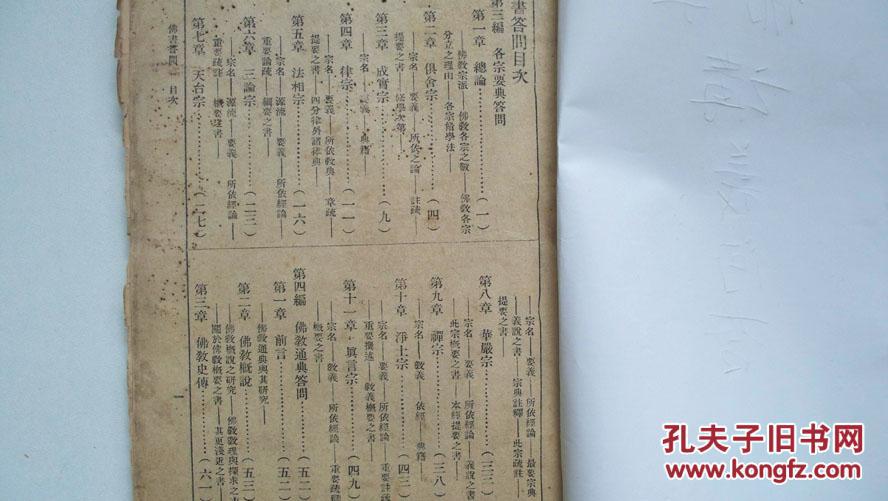 書答問目次
第三編 各宗要典答問
第一章 總論………(一)
佛教宗派——佛教各宗之數——佛教各宗
分立之理由——各宗脩學法——
第二章 俱舍宗………(四)
——宗名——要義——所依之論——註疏——
提要之書——修學次第——
第三章 成實宗………(九)
——宗名——要義——典籍——
第四章 律宗………(一一)
——宗名——要義——所依教典——章疏——
提要之書——四分律外諸律典——
第五章 法相宗………(一六)
——宗名——源流——要義——所依經論——
重要論疏——綱要之書——
第六章 三論宗………(二三)
——宗名——源流——要義——所依經論——
重要疏註——概要之書——
第七章 天台宗………(二七)
佛書答問 目次
——宗名——要義——所依經論——最要宗典
——義說之書——宗典註釋——此宗疏註
提要之書——
第八章 華嚴宗………(三三)
——宗名——宗義——所依經論——義說之書
——此宗概要之書——本經提要之書——
第九章 禪宗………(三八)
——宗名——教義——依經——典籍——
第十章 淨土宗………(四三)
——宗名——要義——所依經論——重要註疏
重要撰述——教義概要之書——
第十一章 眞言宗………(四九)
——宗名——教義——所依經論——重要疏釋
概要之書——
第四編 佛教通典答問………(五二)
第一章 前言………(五二)
——佛教通典與其研究——
第二章 佛教概說………(五三)
佛教概說之研究——佛教教理與探求之
——關於佛教概要之書——其更淺近之書——
第三章 佛教史傳………(六一)
一
孔夫子旧书网
www.kongfz.com